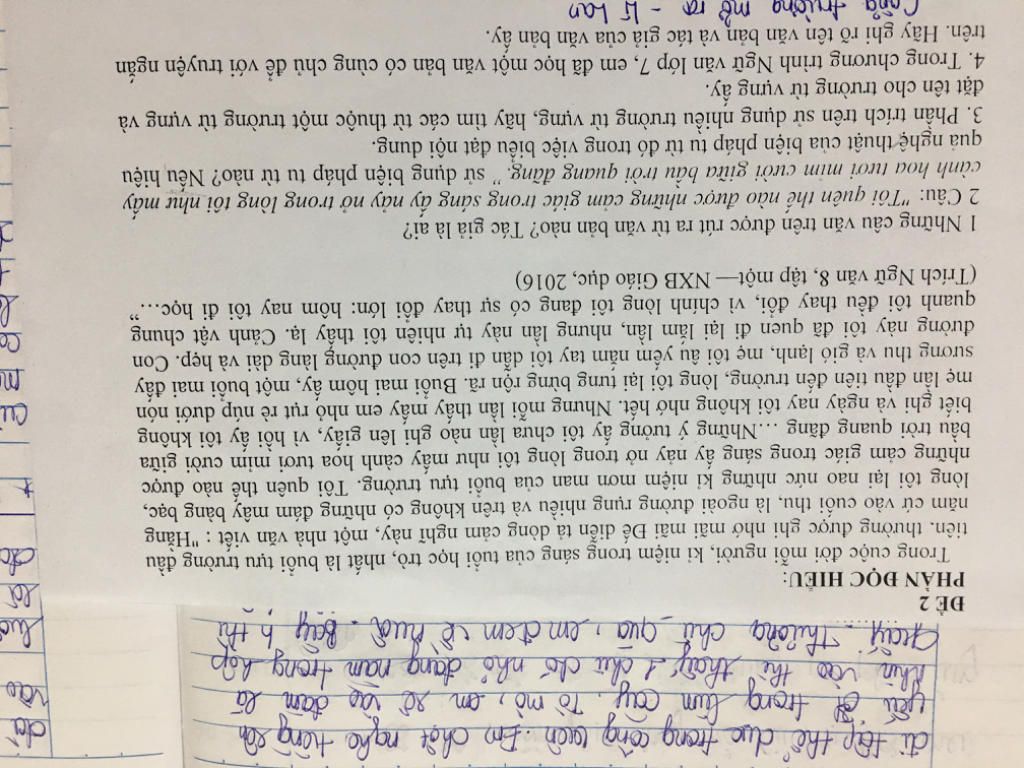 đi tập thể dục trong công viên. Em chợt nghe tiếng rên
yếu ớt trong lùm cây. Tò mò, em rẽ vào đám lá
nhìn vào thì thấy 1 chú chó nhỏ đang nằm trong hộp
giấy. Thương chú quá, em đem về nuôi. Bây h thì
ĐỀ 2
PHẦN ĐỌC HIỂU:
Trong cuộc đời mỗi người, kỉ niệm trong sáng của tuổi học trò, nhất là buổi tựu trường đầu
tiên. thường được ghi nhớ mãi mãi Để diễn tả dòng cảm nghĩ này, một nhà văn viết : "Hằng
năm cứ vào cuối thu, lá ngoài đường rụng nhiều và trên không có những đám mây bàng bạc,
lòng tôi lại nao nức những kỉ niệm mơn man của buổi tựu trường. Tôi quên thế nào được
những cảm giác trong sáng ấy nảy nở trong lòng tôi như mấy cành hoa tươi mỉm cười giữa
bầu trời quang đãng …Những ý tưởng ấy tôi chưa lần nào ghi lên giấy, vì hồi ấy tôi không
biết ghi và ngày nay tôi không nhớ hết. Nhưng mỗi lần thấy mấy em nhỏ rụt rè núp dưới nón
mẹ lần đầu tiên đến trường, lòng tôi lại tưng bừng rộn rã. Buổi mai hôm ấy, một buổi mai đầy
sương thu và gió lạnh, mẹ tôi âu yếm nắm tay tôi dẫn đi trên con đường làng dài và hẹp. Con
đường này tôi đã quen đi lại lắm lần, nhưng lần này tự nhiên tôi thấy lạ. Cảnh vật chung
quanh tôi đều thay đổi, vì chính lòng tôi đang có sự thay đổi lớn: hôm nay tôi đi học…”
(Trích Ngữ văn 8, tập một— NXB Giáo dục, 2016)
1 Những câu văn trên được rút ra từ văn bản nào? Tác giả là ai?
2 Câu: "Tôi quên thế nào được những cảm giác trong sáng ấy nảy nở trong lòng tôi như mấy
cành hoa tươi mỉm cười giữa bầu trời quang đãng." sử dụng biện pháp tu từ nào? Nêu hiệu
quả nghệ thuật của biện pháp tu từ đó trong việc biểu đạt nội dung.
3. Phần trích trên sử dụng nhiều trường từ vựng, hãy tìm các từ thuộc một trường từ vựng và
đặt tên cho trường từ vựng ấy.
4. Trong chương trình Ngữ văn lớp 7, em đã học một văn bản có cùng chủ đề với truyện ngắn
trên. Hãy ghi rõ tên văn bản và tác giả của văn bản ấy.
Cổng trường mở ra - Lí Lan